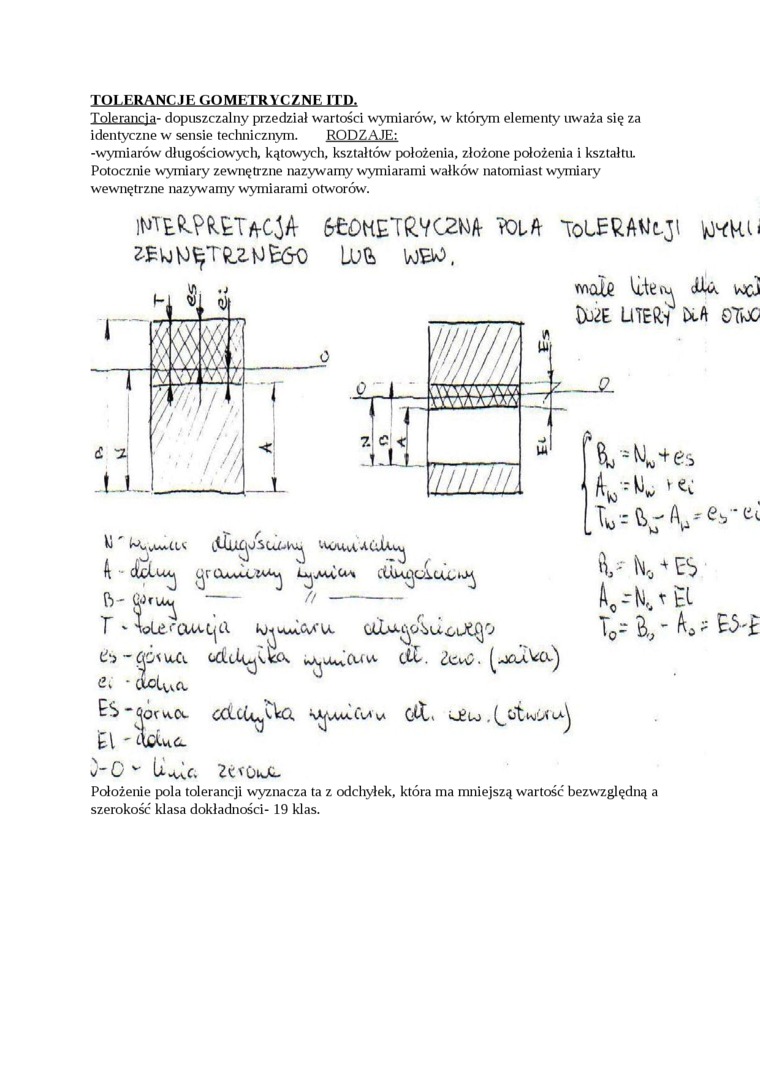 TOLERANCJE GOMETRYCZNE ITD.
Tolerancja- dopuszczalny przedział wartości wymiarów, w którym elementy uważa się za
identyczne w sensie technicznym. RODZAJE:
-wymiarów długościowych, kątowych, kształtów położenia, złożone położenia i kształtu.
Potocznie wymiary zewnętrzne nazywamy wymiarami wałków natomiast wymiary
wewnętrzne nazywamy wymiarami otworów.
INTERPRETACJA GEOMETRYCZNA POLA TOLERANCJI
ZEWNĘTRZNEGO LUB WEW.
małe litery dla
DUŻE LITERY DLA
T es ei
O
B N A
ES
O O
N B A
EI
Bw = Nw + es
Aw = Nw + ei
Tw = Bw - Aw = es - ei
Bo = No + ES
Ao = No + EI
To = Bo - Ao = ES-E
N - wymiar długościowy nominalny
A - dolny graniczny wymiar długościowy
B - górny — // —
T - tolerancja wymiaru długościowego
es - górna odchyłka wymiaru dł. zew. (wałka)
ei - dolna
ES - górna odchyłka wymiaru dł. wew. (otworu)
EI - dolna
O-O - linia zerowa
Położenie pola tolerancji wyznacza ta z odchyłek, która ma mniejszą wartość bezwzględną a
szerokość klasa dokładności- 19 klas.